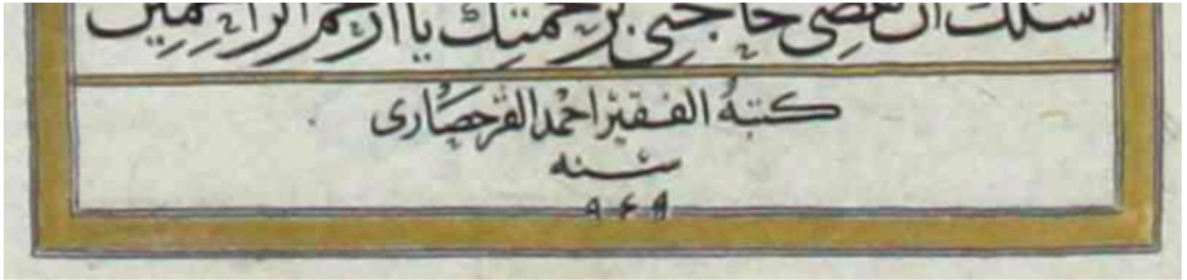 اسئلك ان تقضى حاجتى برحمتك يا ارحم الراحمين
كتبهُ الفقير احمد القرحصارى
سنه